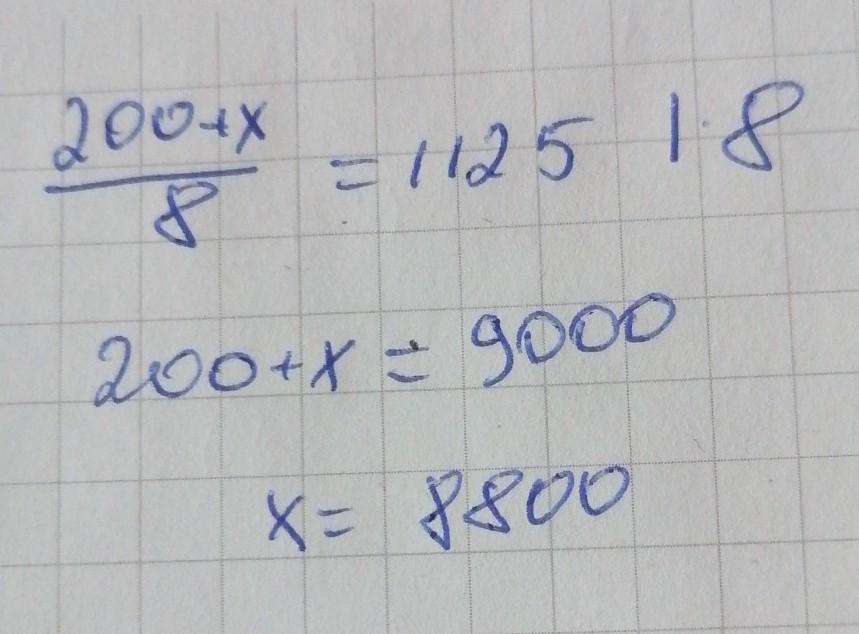 200+x
8
= 1125 | · 8
200+x = 9000
x = 8800